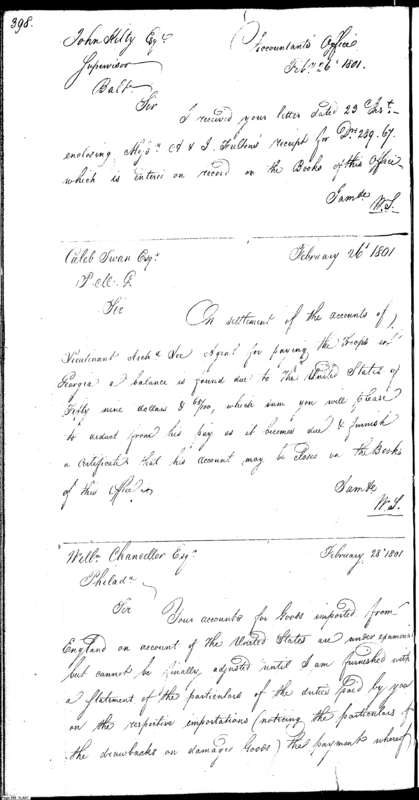 398.
John Kilty Esqr. Accountants Office
Supervisor Feby. 26th 1801.
Balt.
Sir
I received your letter dated 23d Inst.
enclosing Messrs. A & J. Fulton's receipt for Drs 289.67.
which is entered on record on the Books of this Office
I am &c.
W.S.
Caleb Swan Esqr. February 26th 1801
P.M.G.
Sir
On settlement of the accounts of
Lieutenant Archd. Lee Agent for paying the Troops in
Georgia a balance is found due to the United States of
Fifty nine dollars & /100, which sum you will please
to deduct from his pay as it becomes due & furnish
a certificate that his account may be closed on the Books
of this Office
I am &c
W.S.
Willm. Chancellor Esqr. February 28th 1801
Philada.
Sir
Your accounts for Goods imported from
England on account of the United States are under
but cannot be finally adjusted until I am furnished with
a Statement of the particulars of the duties paid by you
on the respective importations (noticing the particulars of
the drawbacks on damaged Goods) the payment whereof